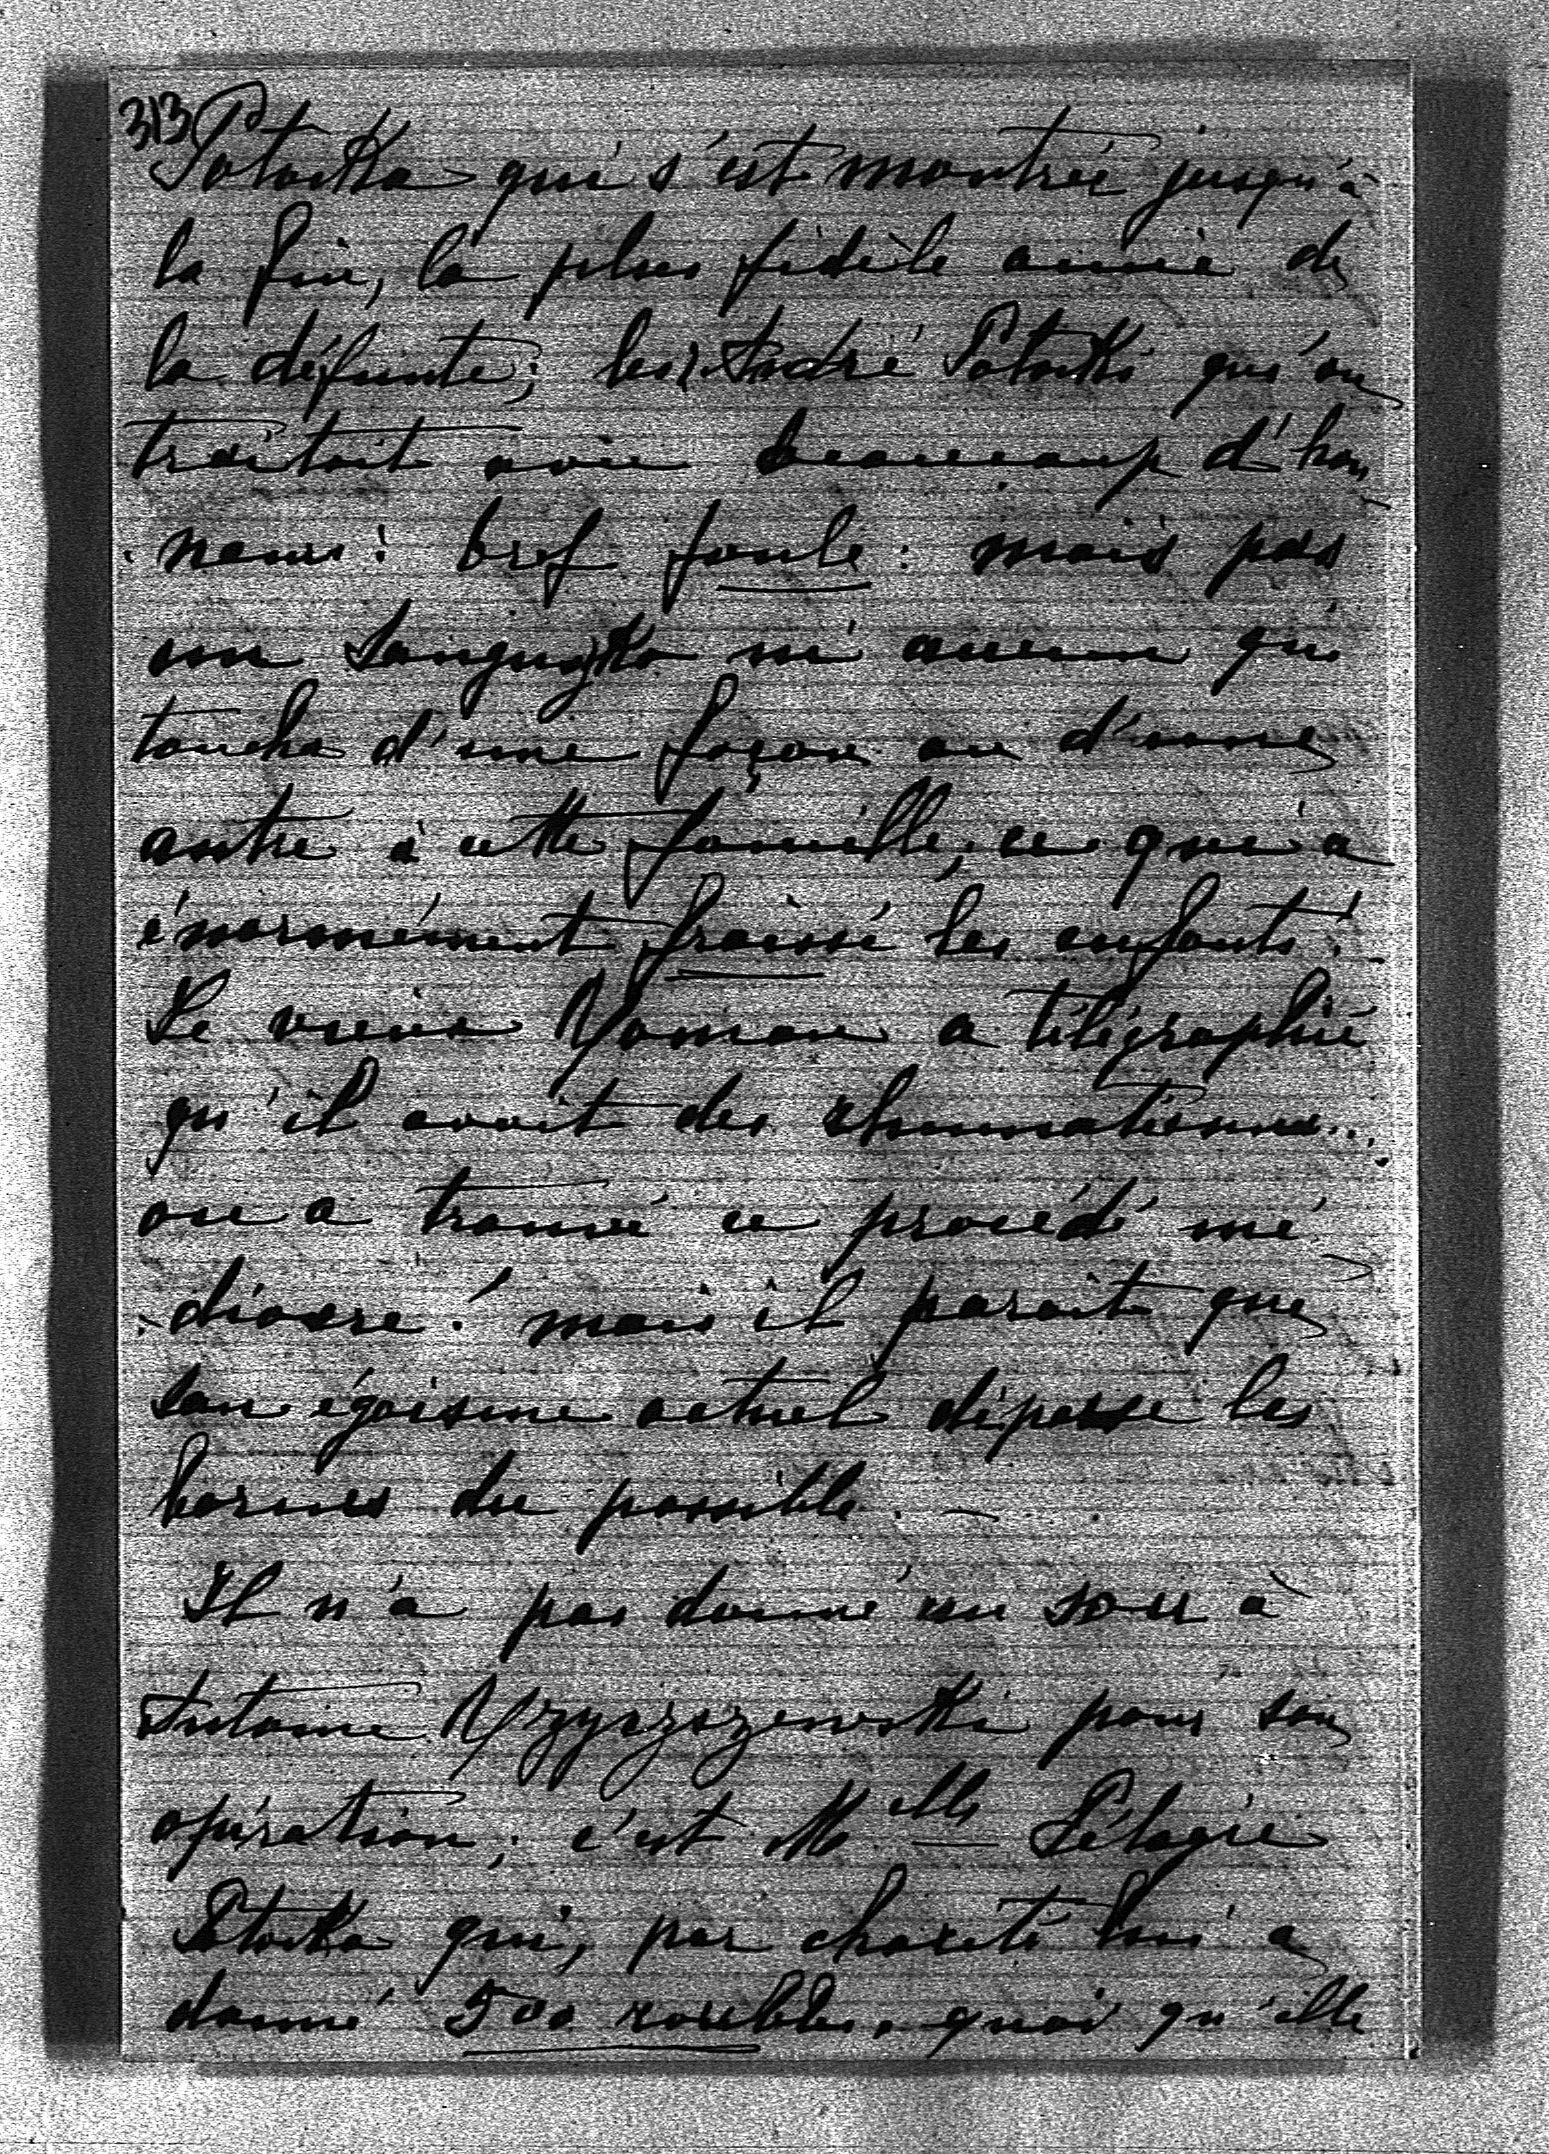 313
Potocka qui s'est montrée jusqu'à
la fin, la plus fidèle amie de
la défunte; les André Potocki qu'on
traitait avec beaucoup d'hon
neur: bref foule: mais pas
un Sanguszko ni aucun qui
toucha d'une façon ou d'une
autre à cette famille, ce qui a
énormément froissé les enfants!
Le vieux Roman a télégraphié
qu'il avait des rhumatismes...
on a trouvé ce procédé mé
diocre! mais il parait que
son égoisme actuel dépasse les
bornes du possible. —
Il n'a pas donné un sou à
Antoine pour son
opération; c'est Melle Pélagie
Potocka qui, par charité lui a
donné 500 roubles, quoi qu'elle